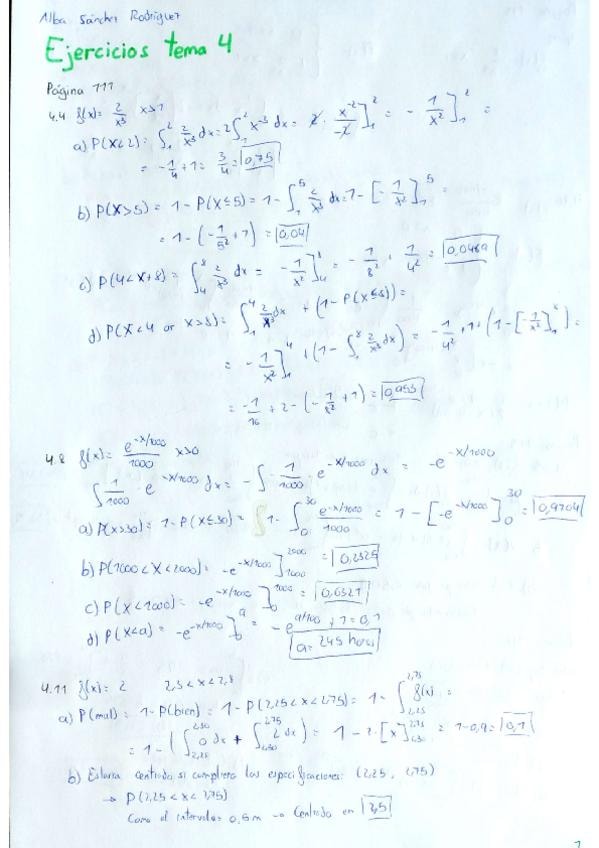 Alba Sánchez Rodríguez
Ejercicios tema 4
Página 111
4.4 f(x)= 2/x³ x>1
a) P(X<2)= ∫₁² 2/x³ dx = 2∫₁² x⁻³ dx = 2 · x⁻²/-2 ]₁² = - 1/x² ]₁² =
= -1/4 + 1 = 3/4 = 0,75
b) P(X>5) = 1 - P(X≤5) = 1 - ∫₁⁵ 2/x³ dx = 1 - [- 1/x²]₁⁵ =
= 1 - (- 1/5² + 1) = 0,04
c) P(4<X+8) = ∫₄⁸ 2/x³ dx = - 1/x² ]₄⁸ = - 1/8² + 1/4² = 0,0469
d) P(X<4 or x>8) = ∫₁⁴ 2/x³ dx + (1 - P(X≤8)) =
= - 1/x² ]₁⁴ + (1 - ∫₁⁸ 2/x³ dx) = - 1/4² + 1 + (1 - [- 1/x²]₁⁸) =
= -1/16 + 2 - (- 1/8² + 1) = 0,953
4.8 f(x)= e^(-x/1000)/1000 x>0
∫ 1/1000 · e^(-x/1000) dx = -∫ - 1/1000 · e^(-x/1000) dx = -e^(-x/1000)
a) P(x>30) = 1 - P(X≤30) = 1 - ∫₀³⁰ e^(-x/1000)/1000 = 1 - [-e^(-x/1000)]₀³⁰ = 0,9704
b) P(1000<X<2000) = -e^(-x/1000) ]₁₀₀₀²⁰⁰⁰ = 0,2325
c) P(X<1000) = -e^(-x/1000) ]₀ =
d) P(X<a) = -e^(-x/1000) ]₀ᵃ = -e^(a/100) + 1 = 0,1
a= 245 horas
4.11 f(x)= 2 2,3<x<2,8
a) P(mal) = 1 - P(bien) = 1 - P(2,25<x<2,75) = 1 - ∫ f(x) =
= 1 - (∫ 0 dx + ∫ 2 dx) = 1 - 2 · [x] = 1 - 0,9 = 0,1
b) Estaría centrado si cumpliera las especificaciones: (2,25, 2,75)
→ P(2,25<x<2,75)
Como el intervalo = 0,5m → Centrado en 2,5
1